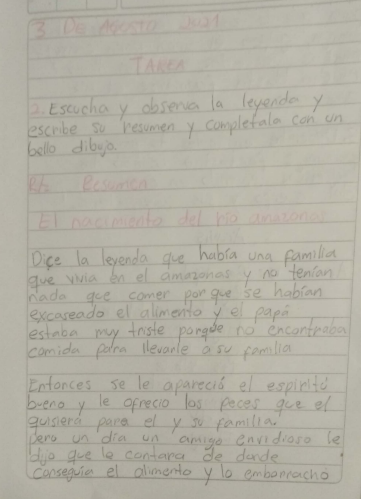 3 De Agosto 2021
TAREA
2. Escucha y observa la leyenda y
escribe su resumen y completala con un
bello dibujo.
R/ Resumen
El nacimiento del río amazonas
Dice la leyenda que había una familia
que vivia en el amazonas y no tenian
nada que comer por que se habian
excaseado el alimento y el papá
estaba muy triste porque no encontraba
comida para llevarle a su familia
Entonces se le apareció el espiritu
bueno y le ofrecio los peces que el
quisiera para el y su familia.
Pero un dia un amigo envidioso le
dijo que le contara de donde
conseguia el alimento y lo emborracho